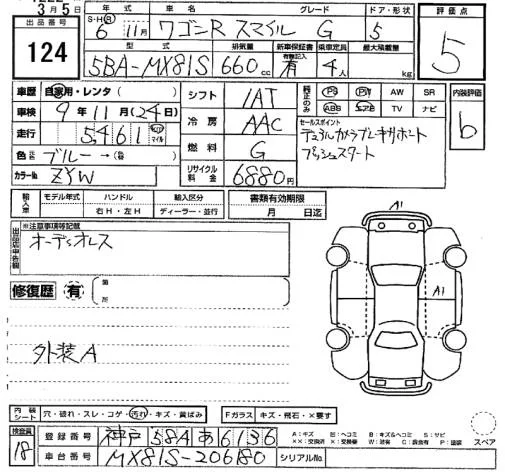 3月5日
出品番号 124
年式 車名 グレード ドア・形状
S・H・R 6 11月 ワゴンR スマイル G 5
型式 排気量 新車保証書 乗車定員 最大積載量
5BA-MX81S 660cc 有 記載有り 4人 kg
評価点 5
車歴 自家用・レンタ( )
車検 9年11月(24日)
走行 5461 キロ マイル
色 元色 ブルー→(替 )
カラーNo. ZYW
シフト IAT
冷房 AAC
燃料 G
リサイクル料金 6880円
純正のみ PS PW AW SR
ABS エアB TV ナビ
内装評価 b
セールスポイント
デュアルカメラブレーキサポート
プッシュスタート
輸入車 モデル年式 ハンドル 輸入区分 書類有効期限
右H・左H ディーラー・並行 月 日迄
出品店申告欄 ※注意事項等記載
オーディオレス
修復歴 有 箇所
外装A
A1
A1
内装シート 穴・破れ・スレ・コゲ・汚れ・キズ・黄ばみ Fガラス キズ・飛石・×要す
スペア
検査員 18
登録番号 神戸 58A あ 6136
車台番号 MX81S-206180 シリアルNo.
A:キズ E:ヘコミ B:キズ&ヘコミ S:サビ
××:交換済 ×:交換要 W:補修有 C:腐食有 P:塗装